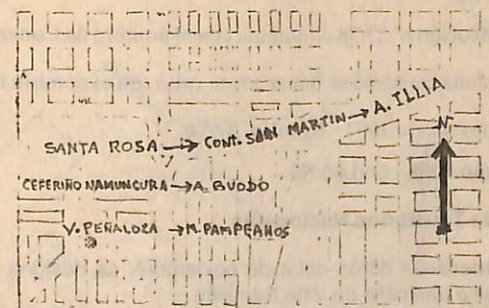 SANTA ROSA → CONT. SAN MARTIN → A. ILLIA
N
CEFERIÑO NAMUNCURA → A. BUODO
V. PEÑALOZA → M. PAMPEANOS